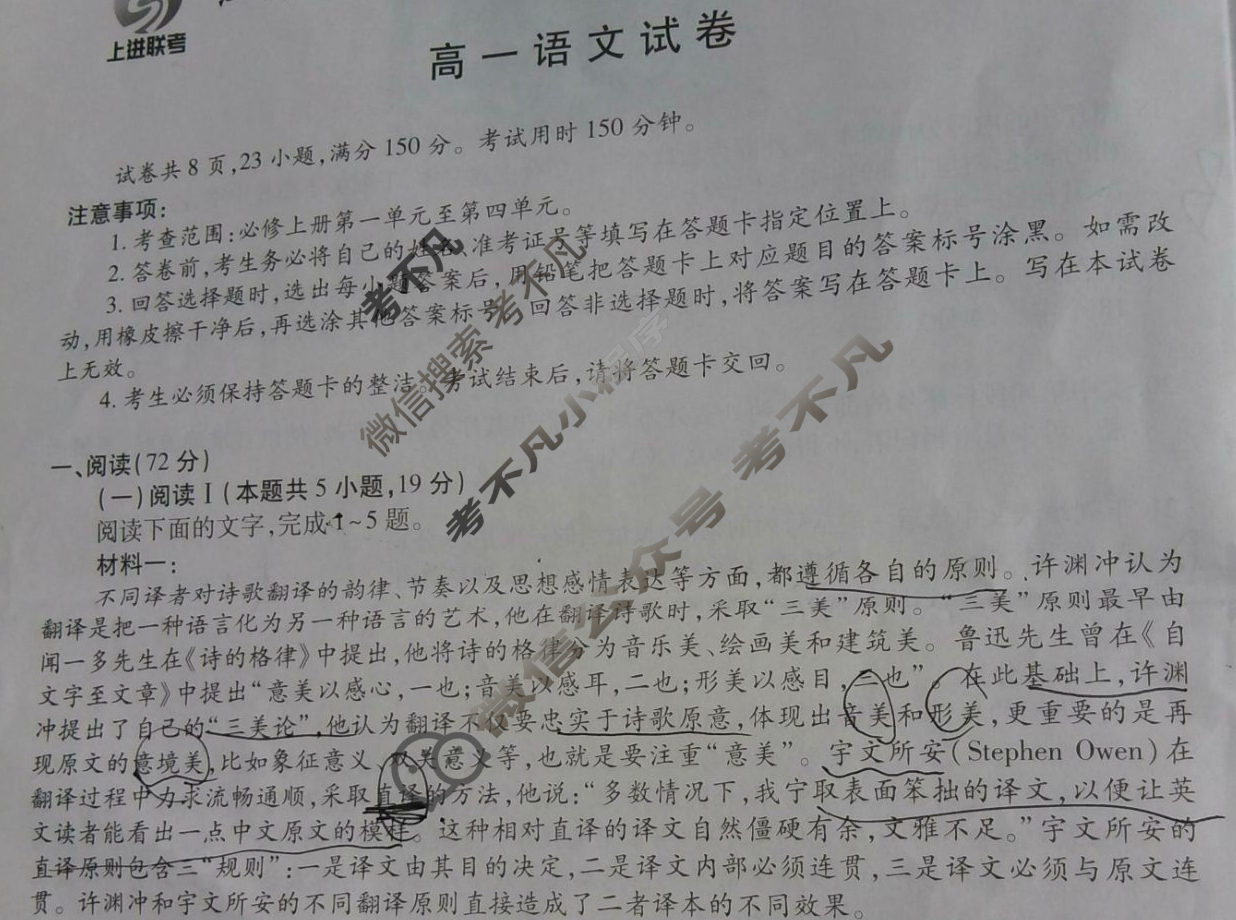 上进联考
高一语文试卷
试卷共8页,23小题,满分150分。考试用时150分钟。
注意事项:
1.考查范围:必修上册第一单元至第四单元。
2.答卷前,考生务必将自己的姓名、准考证号等填写在答题卡指定位置上。
3.回答选择题时,选出每小题答案后,用铅笔把答题卡上对应题目的答案标号涂黑。如需改
动,用橡皮擦干净后,再选涂其他答案标号。回答非选择题时,将答案写在答题卡上。写在本试卷
上无效。
4.考生必须保持答题卡的整洁。考试结束后,请将答题卡交回。
一、阅读(72分)
(一)阅读Ⅰ(本题共5小题,19分)
阅读下面的文字,完成1~5题。
材料一:
不同译者对诗歌翻译的韵律、节奏以及思想感情表达等方面,都遵循各自的原则。许渊冲认为
翻译是把一种语言化为另一种语言的艺术,他在翻译诗歌时,采取“三美”原则。“三美”原则最早由
闻一多先生在《诗的格律》中提出,他将诗的格律分为音乐美、绘画美和建筑美。鲁迅先生曾在《自
文字至文章》中提出“意美以感心,一也;音美以感耳,二也;形美以感目,三也”。在此基础上,许渊
冲提出了自己的“三美论”,他认为翻译不仅要忠实于诗歌原意,体现出音美和形美,更重要的是再
现原文的意境美,比如象征意义、双关意义等,也就是要注重“意美”。宇文所安(Stephen Owen)在
翻译过程中力求流畅通顺,采取直译的方法,他说:“多数情况下,我宁取表面笨拙的译文,以便让英
文读者能看出一点中文原文的模样。这种相对直译的译文自然僵硬有余,文雅不足。”宇文所安的
直译原则包含三“规则”:一是译文由其目的决定,二是译文内部必须连贯,三是译文必须与原文连
贯。许渊冲和宇文所安的不同翻译原则直接造成了二者译本的不同效果。
考不凡
微信搜索 考不凡
考不凡小程序
微信公众号 考不凡